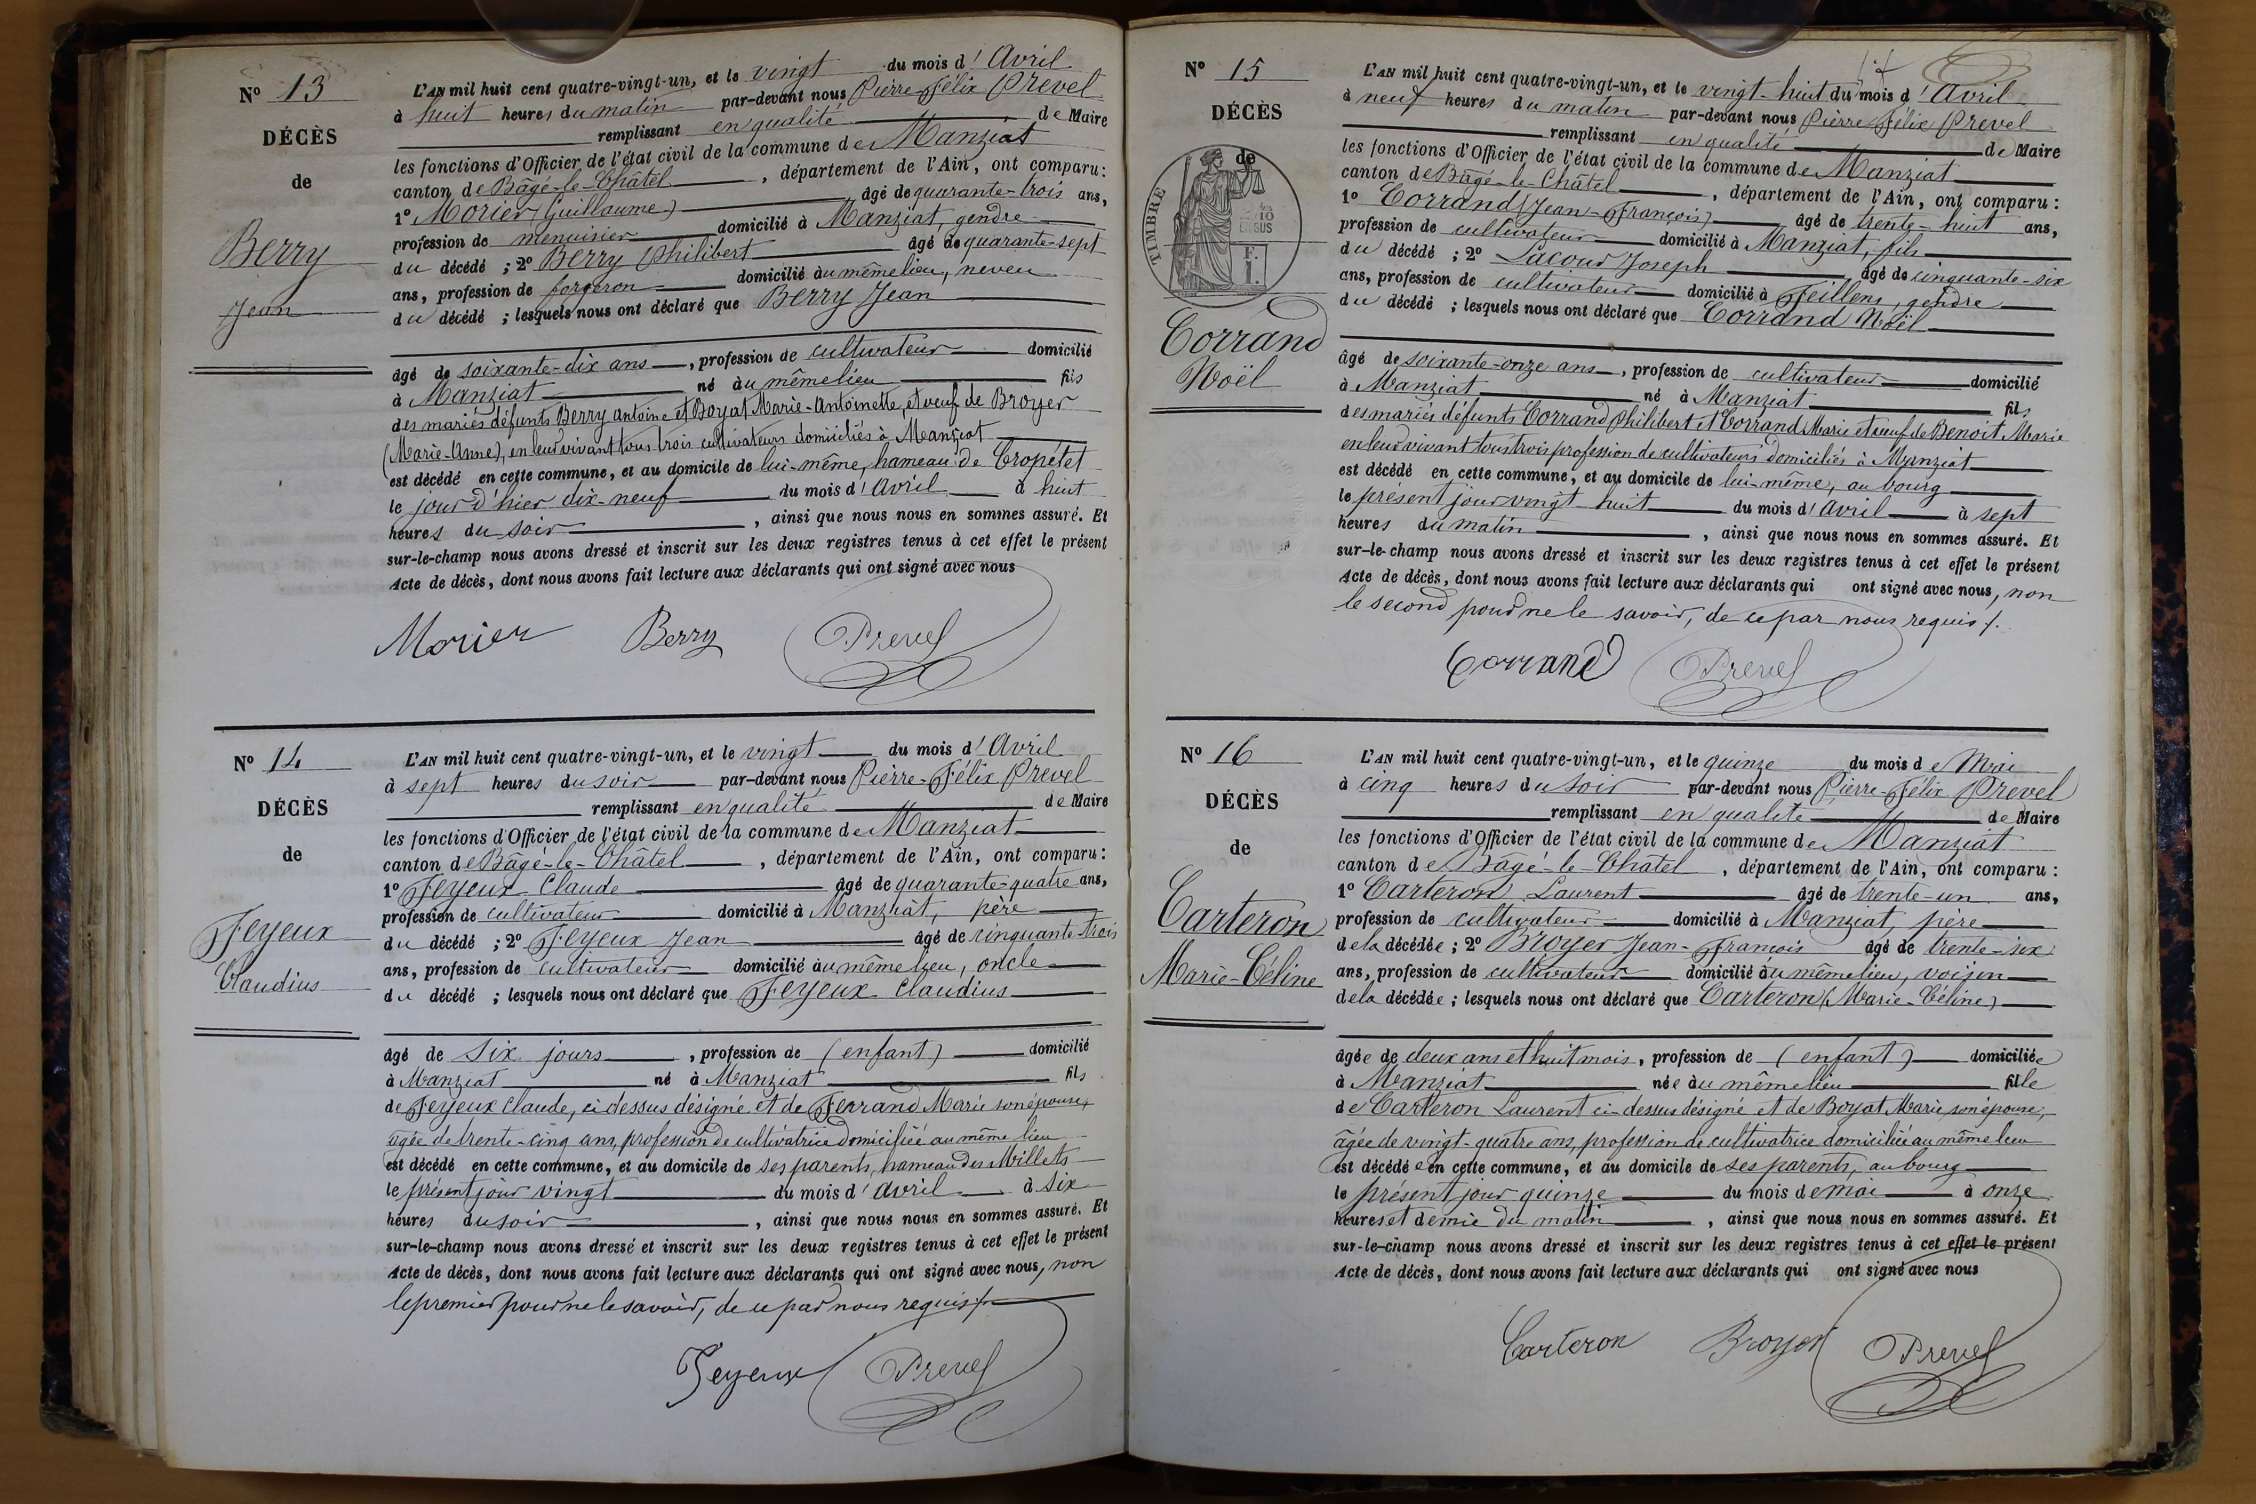 Nº 13
DÉCÈS
de
Berry
Jean
L'AN mil huit cent quatre-vingt-un, et le vingt du mois d'Avril
à huit heures du matin par-devant nous Pierre-Félix Prevel
remplissant en qualité de Maire
les fonctions d'Officier de l'état civil de la commune de Manziat
canton de Bâgé-le-Châtel, département de l'Ain, ont comparu:
1º Morier (Guillaume) âgé de quarante-trois ans,
profession de menuisier domicilié à Manziat, gendre
du décédé ; 2º Berry Philibert âgé de quarante-sept
ans, profession de forgeron domicilié au même lieu, neveu
du décédé ; lesquels nous ont déclaré que Berry Jean
âgé de soixante-dix ans, profession de cultivateur domicilié
à Manziat né au même lieu fils
des mariés défunts Berry Antoine et Boyat Marie-Antoinette, et veuf de Broyer
(Marie-Anne), en leur vivant tous trois cultivateurs domiciliés à Manziat
est décédé en cette commune, et au domicile de lui-même, hameau de Cropétet
le jour d'hier dix-neuf du mois d'Avril à huit
heures du soir, ainsi que nous nous en sommes assuré. Et
sur-le-champ nous avons dressé et inscrit sur les deux registres tenus à cet effet le présent
Acte de décès, dont nous avons fait lecture aux déclarants qui ont signé avec nous
Morier Berry Prevel
Nº 14
DÉCÈS
de
Feyeux
Claudius
L'AN mil huit cent quatre-vingt-un, et le vingt du mois d'Avril
à sept heures du soir par-devant nous Pierre-Félix Prevel
remplissant en qualité de Maire
les fonctions d'Officier de l'état civil de la commune de Manziat
canton de Bâgé-le-Châtel, département de l'Ain, ont comparu:
1º Feyeux Claude âgé de quarante-quatre ans,
profession de cultivateur domicilié à Manziat, père
du décédé ; 2º Feyeux Jean âgé de cinquante-trois
ans, profession de cultivateur domicilié au même lieu, oncle
du décédé ; lesquels nous ont déclaré que Feyeux Claudius
âgé de six jours, profession de (enfant) domicilié
à Manziat né à Manziat fils
de Feyeux Claude, ci dessus désigné et de Ferrand Marie son épouse,
âgée de trente-cinq ans, profession de cultivatrice domiciliée au même lieu
est décédé en cette commune, et au domicile de ses parents, hameau des Millets
le présent jour vingt du mois d'avril à six
heures du soir, ainsi que nous nous en sommes assuré. Et
sur-le-champ nous avons dressé et inscrit sur les deux registres tenus à cet effet le présent
Acte de décès, dont nous avons fait lecture aux déclarants qui ont signé avec nous, non
le premier pour ne le savoir, de ce par nous requis /.
Feyeux Prevel
Nº 15
DÉCÈS
de
TIMBRE
Corrand
Noël
L'AN mil huit cent quatre-vingt-un, et le vingt-huit du mois d'Avril
à neuf heures du matin par-devant nous Pierre Félix Prevel
remplissant en qualité de Maire
les fonctions d'Officier de l'état civil de la commune de Manziat
canton de Bâgé-le-Châtel, département de l'Ain, ont comparu :
1º Corrand (Jean-François) âgé de trente-huit ans,
profession de cultivateur domicilié à Manziat, fils
du décédé ; 2º Lacour Joseph âgé de cinquante-six
ans, profession de cultivateur domicilié à Feillens, gendre
du décédé ; lesquels nous ont déclaré que Corrand Noël
âgé de soixante-onze ans, profession de cultivateur domicilié
à Manziat né à Manziat fils
des mariés défunts Corrand Philibert et Corrand Marie et veuf de Benoit Marie
en leur vivant tous trois profession de cultivateurs domiciliés à Manziat
est décédé en cette commune, et au domicile de lui-même, au bourg
le présent jour vingt-huit du mois d'avril à sept
heures du matin, ainsi que nous nous en sommes assuré. Et
sur-le-champ nous avons dressé et inscrit sur les deux registres tenus à cet effet le présent
Acte de décès, dont nous avons fait lecture aux déclarants qui ont signé avec nous, non
le second pour ne le savoir, de ce par nous requis /.
Corrand Prevel
Nº 16
DÉCÈS
de
Carteron
Marie-Céline
L'AN mil huit cent quatre-vingt-un, et le quinze du mois de Mai
à cinq heures du soir par-devant nous Pierre-Félix Prevel
remplissant en qualité de Maire
les fonctions d'Officier de l'état civil de la commune de Manziat
canton de Bâgé-le-Châtel, département de l'Ain, ont comparu :
1º Carteron Laurent âgé de trente-un ans,
profession de cultivateur domicilié à Manziat, père
de la décédée ; 2º Broyer Jean-François âgé de trente-six
ans, profession de cultivateur domicilié au même lieu, voisin
de la décédée ; lesquels nous ont déclaré que Carteron (Marie-Céline)
âgée de deux ans et huit mois, profession de (enfant) domiciliée
à Manziat née au même lieu fille
de Carteron Laurent ci-dessus désigné et de Boyat Marie, son épouse,
âgée de vingt-quatre ans, profession de cultivatrice domiciliée au même lieu
est décédée en cette commune, et au domicile de ses parents, au bourg
le présent jour quinze du mois de mai à onze
heures et demie du matin, ainsi que nous nous en sommes assuré. Et
sur-le-champ nous avons dressé et inscrit sur les deux registres tenus à cet effet le présent
Acte de décès, dont nous avons fait lecture aux déclarants qui ont signé avec nous
Carteron Broyer Prevel